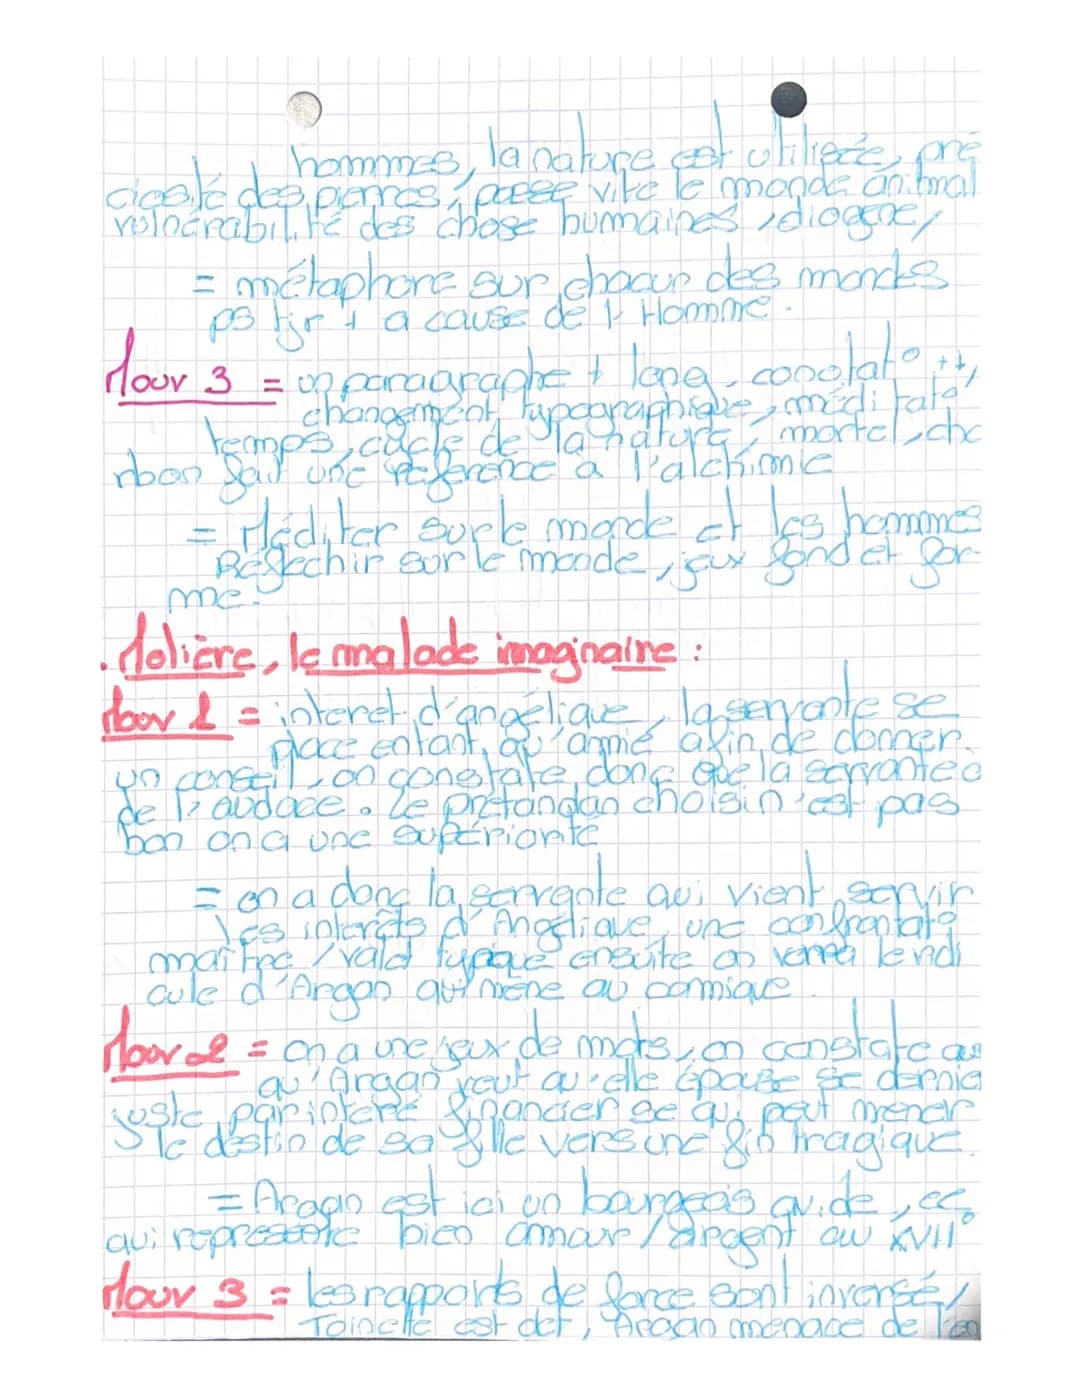 hommes, la nature est utilisée, pré
ciosité des pierres, passe vite le monde animal
vulnérabilité des chose humaines, diogene,
= métaphore sur chacun des mondes
ps tjr + a cause de l' Homme.
Mouv 3 = un paragraphe + long, conotat° ++,
changement typographique, méditat°,
temps, cycle de la nature, mortel, cha
rbon fait une reference a l'alchimie
= Méditer sur le monde et les hommes
Réflechir sur le monde, jeux fond et for-
me.
. Molière, le malade imaginaire :
Mouv 1 = interet d'angélique, la servante se
place entant qu'amie afin de donner
un conseil, on constate donc que la servante a
de l'audace. Le prétandan choisin est pas
bon on a une supériorité
= on a donc la servante qui vient servir
les interêts d'Angélique, une confrontat°
maître / valet typique ensuite on verra le ridi
cule d'Argan qui mène au commique.
Mouv 2 = on a une jeux de mots, on constate que
qu'Argan veut qu'elle épouse se dernie
juste par interé financier se qui peut mener
le destin de sa fille vers une fin tragique.
= Argan est ici un bourgeois avide, ce
qui represente bien amour / argent au XVII°
Mouv 3 = les rapports de force sont inversé,
Toinette est det, Argan menace de l'en